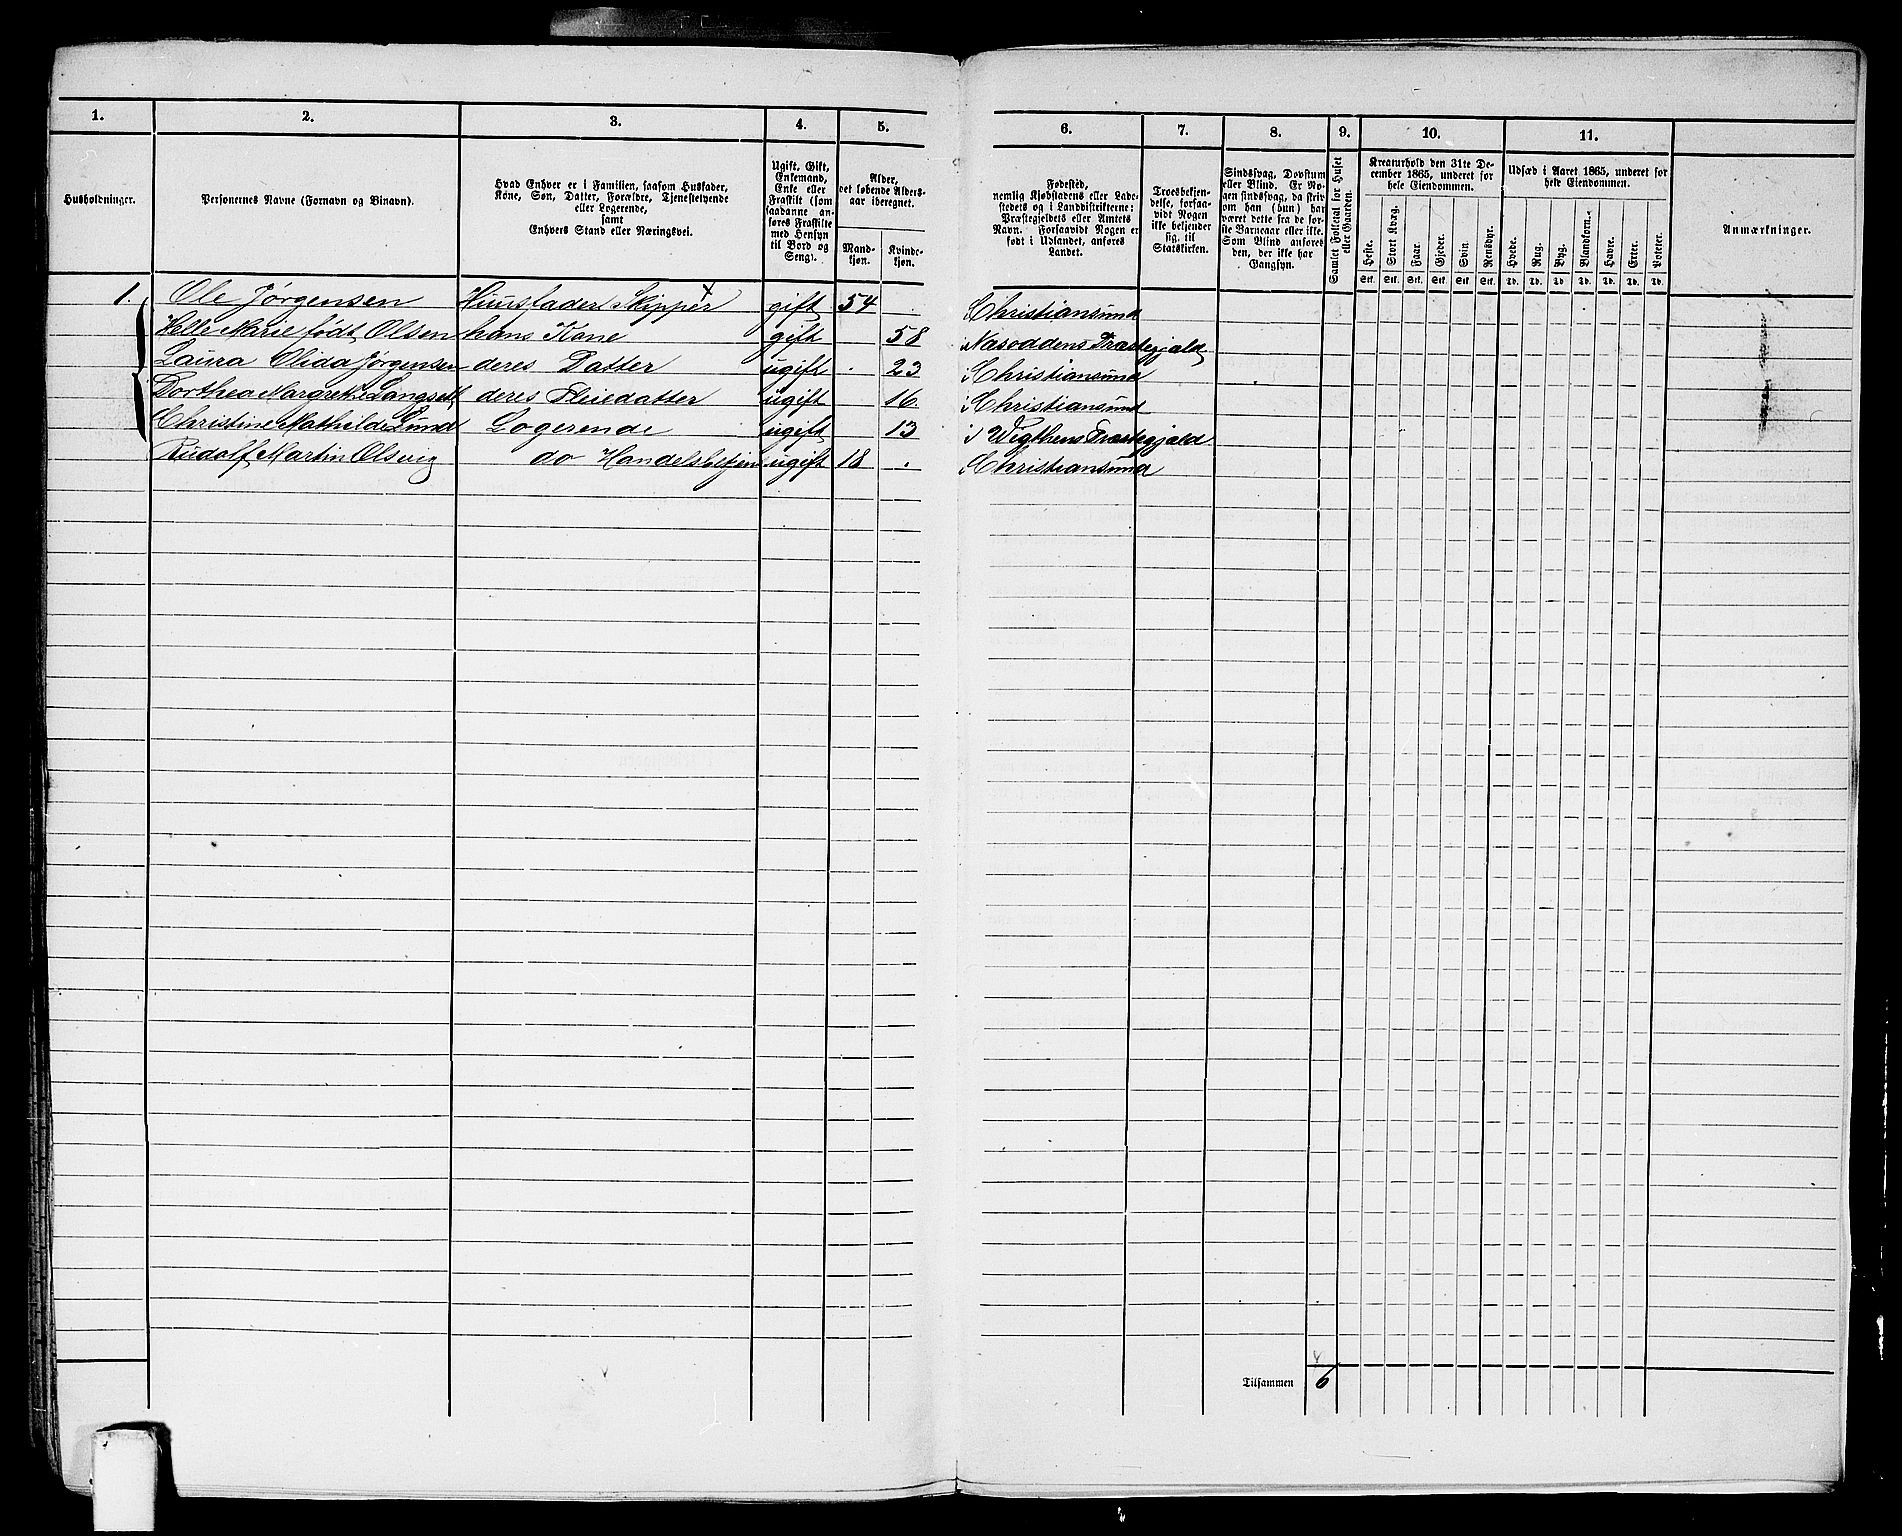 1. 2. 3. 4. 5. 6. 7. 8. 9. 10. 11.
Husholdninger.
Personernes Navne (Fornavn og Binavn).
Hvad Enhver er i Familien, saasom Husfader,
Kone, Søn, Datter, Forældre, Tjenestetyende
eller Logerende,
samt
Enhvers Stand eller Næringsvei.
Ugift, Gift,
Enkemand,
Enke eller
Fraskilt (som
saadanne an-
føres Fraskilte
med Hensyn
til Bord og
Seng).
Alder,
det løbende Alders-
aar iberegnet.
Mand-
kjøn.
Kvinde-
kjøn.
Fødested,
nemlig Kjøbstadens eller Lade-
stedets og i Landdistrikterne:
Præstegjeldets eller Amtets
Navn. Forsaavidt Nogen er
født i Udlandet, anføres
Landet.
Troesbekjen-
delse, forsaa-
vidt Nogen
ikke bekjender
sig til
Statskirken.
Sindssvag, Dovstum
eller Blind. Er No-
gen sindssvag, da skriv
om han (hun) har
været dette fra de før-
ste Barneaar eller ikke.
Som Blind anføres
den, der ikke har
Gangsyn.
Samlet Folketal for Huset
eller Gaarden.
Kreaturhold den 31te De-
cember 1865, underet for
hele Eiendommen.
Heste. Stort Kvæg. Faar. Gjeder. Svin. Rensdyr.
Stk. Stk. Stk. Stk. Stk. Stk.
Udsæd i Aaret 1865, underet for
hele Eiendommen.
Hvede. Rug. Byg. Blandkorn. Havre. Erter. Poteter.
Td. Td. Td. Td. Td. Td. Td.
Anmærkninger.
1. Ole Jørgensen Huusfader Skipper gift 54 Christiansund
Helle Marie født Olsen hans Kone gift 58 Næsoddens Præstegjæld
Laura Olida Jørgensen deres Datter ugift 23 Christiansund
Dorthea Margrethe Langseth deres Pleiedatter ugift 16 Christiansund
Christine Mathilde Lund Logerende ugift 13 Præstegjæld
Rudolf Martin Olsvig do Handelsbetjent ugift 18 Christiansund
Tilsammen 6